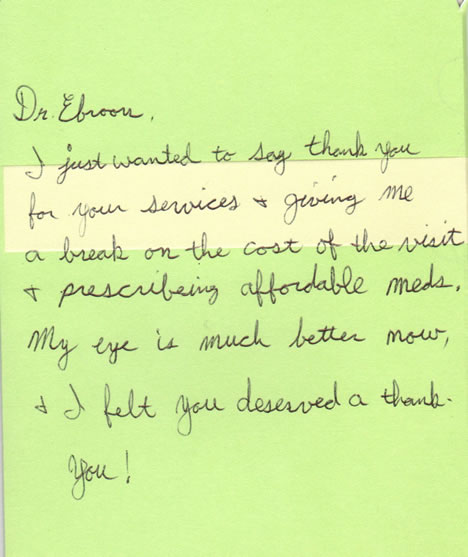 Dr. Ebroon,
I just wanted to say thank you
for your services + giving me
a break on the cost of the visit
+ prescribeing affordable meds.
My eye is much better now,
+ I felt you deserved a thank-
you!